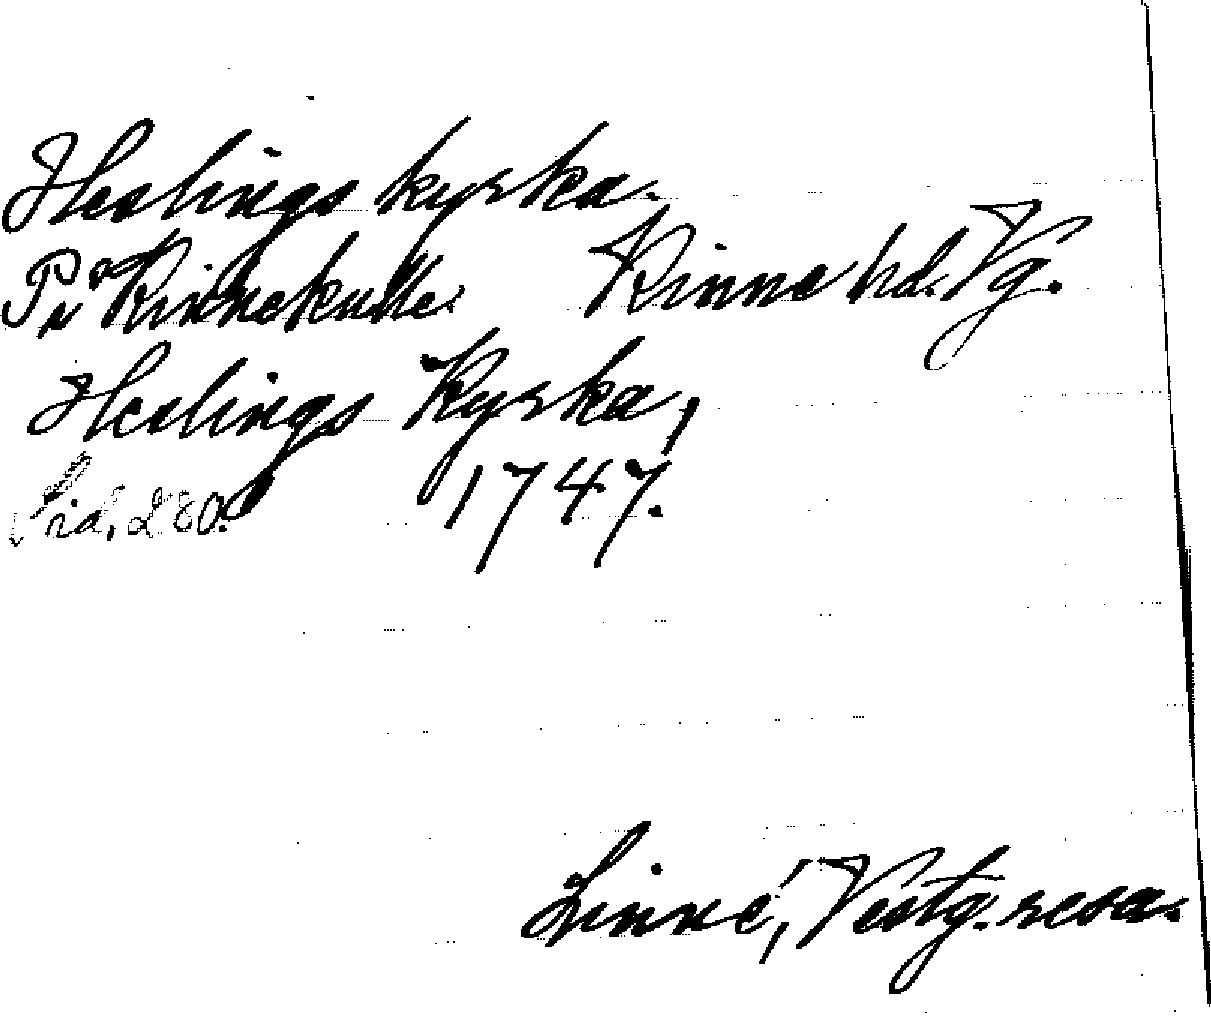 Heslings kyrka.
På Kinnekulle. Kinne hd. Vg.
Heslings Kyrka,
Sid. 280. 1747.
Linné, Vestg. resa.